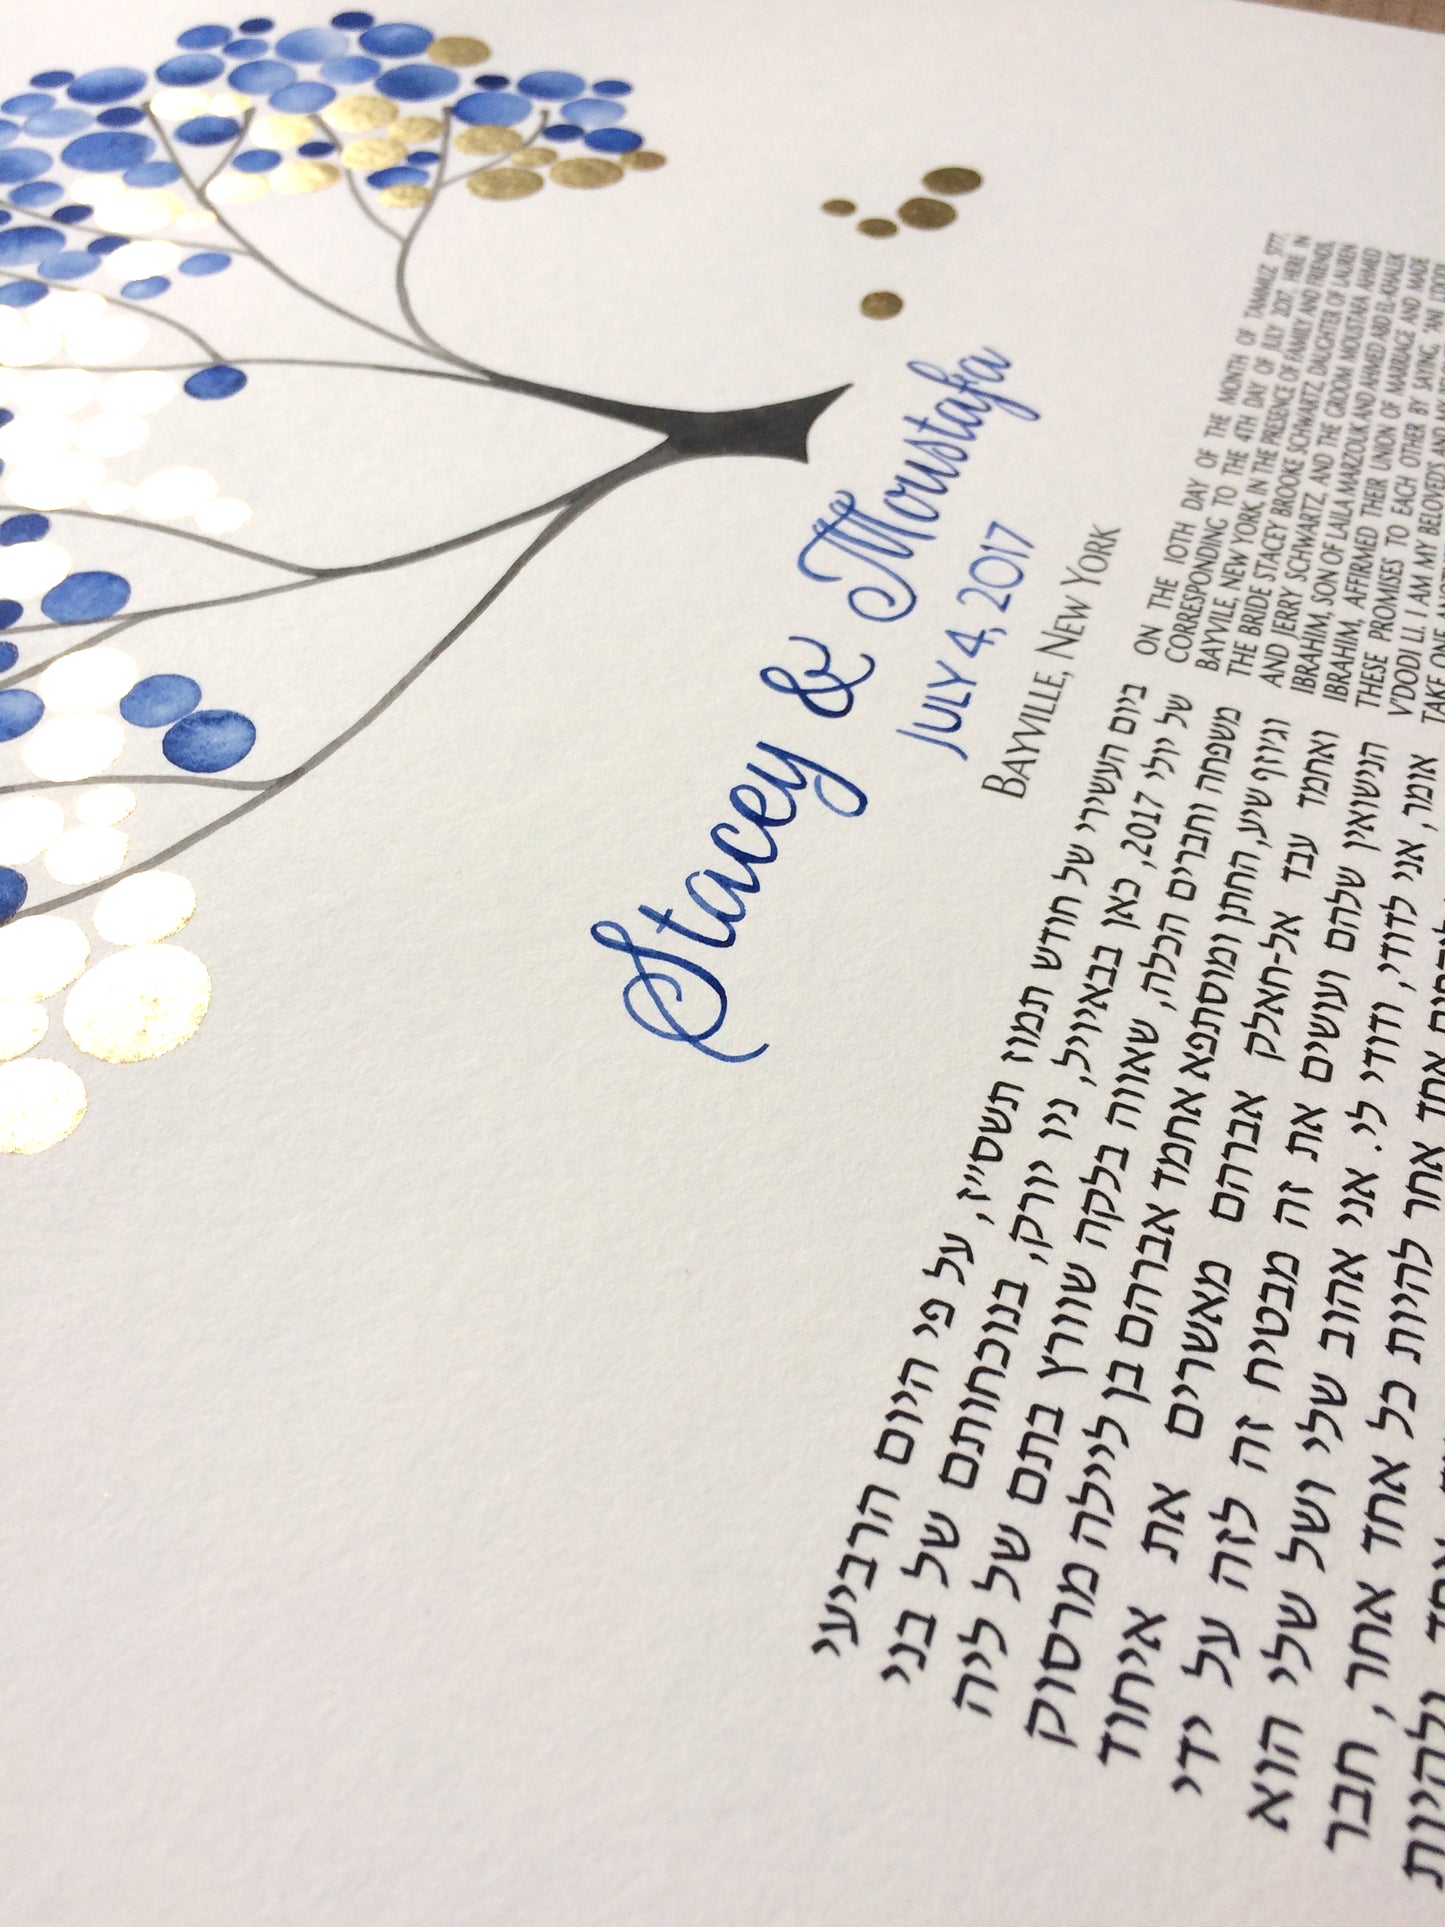 Stacey & Moustafa
JULY 4, 2017
BAYVILLE, NEW YORK
ביום העשירי של חודש תמוז תשס״ז, על פי היום הרביעי
של יולי 2017, כאן בבאיויל, ניו יורק, בנוכחותם של בני
משפחה וחברים הכלה, שאווה בלקה שוורץ בתם של ליה
וגיוזף שיע, החתן ומוסתפא אחמד אברהם בן ליילה מרסוק
ואחמד עבד אל-חאלק אברהם מאשרים את איחוד
הנישואין שלהם ועושים את זה מבטיח זה לזה על ידי
אומר, אני לדודי, ודודי לי. אני אהוב שלי ושל שלי הוא
אחד אחר להיות כל אחד אחר, חבר
ולהיות
ON THE 10TH DAY OF THE MONTH OF TAMMUZ, 5777,
CORRESPONDING TO THE 4TH DAY OF JULY 2017, HERE IN
BAYVILE, NEW YORK, IN THE PRESENCE OF FAMILY AND FRIENDS,
THE BRIDE STACEY BROOKE SCHWARTZ, DAUGHTER OF LAUREN
AND JERRY SCHWARTZ, AND THE GROOM MOUSTAFA AHMED
IBRAHIM, SON OF LAILA MARZOUK AND AHMED ABD EL-KHALEK
IBRAHIM, AFFIRMED THEIR UNION OF MARRIAGE AND MADE
THESE PROMISES TO EACH OTHER BY SAYING, "ANI L'DODI,
V'DODI LI. I AM MY BELOVED'S AND MY
TAKE ONE